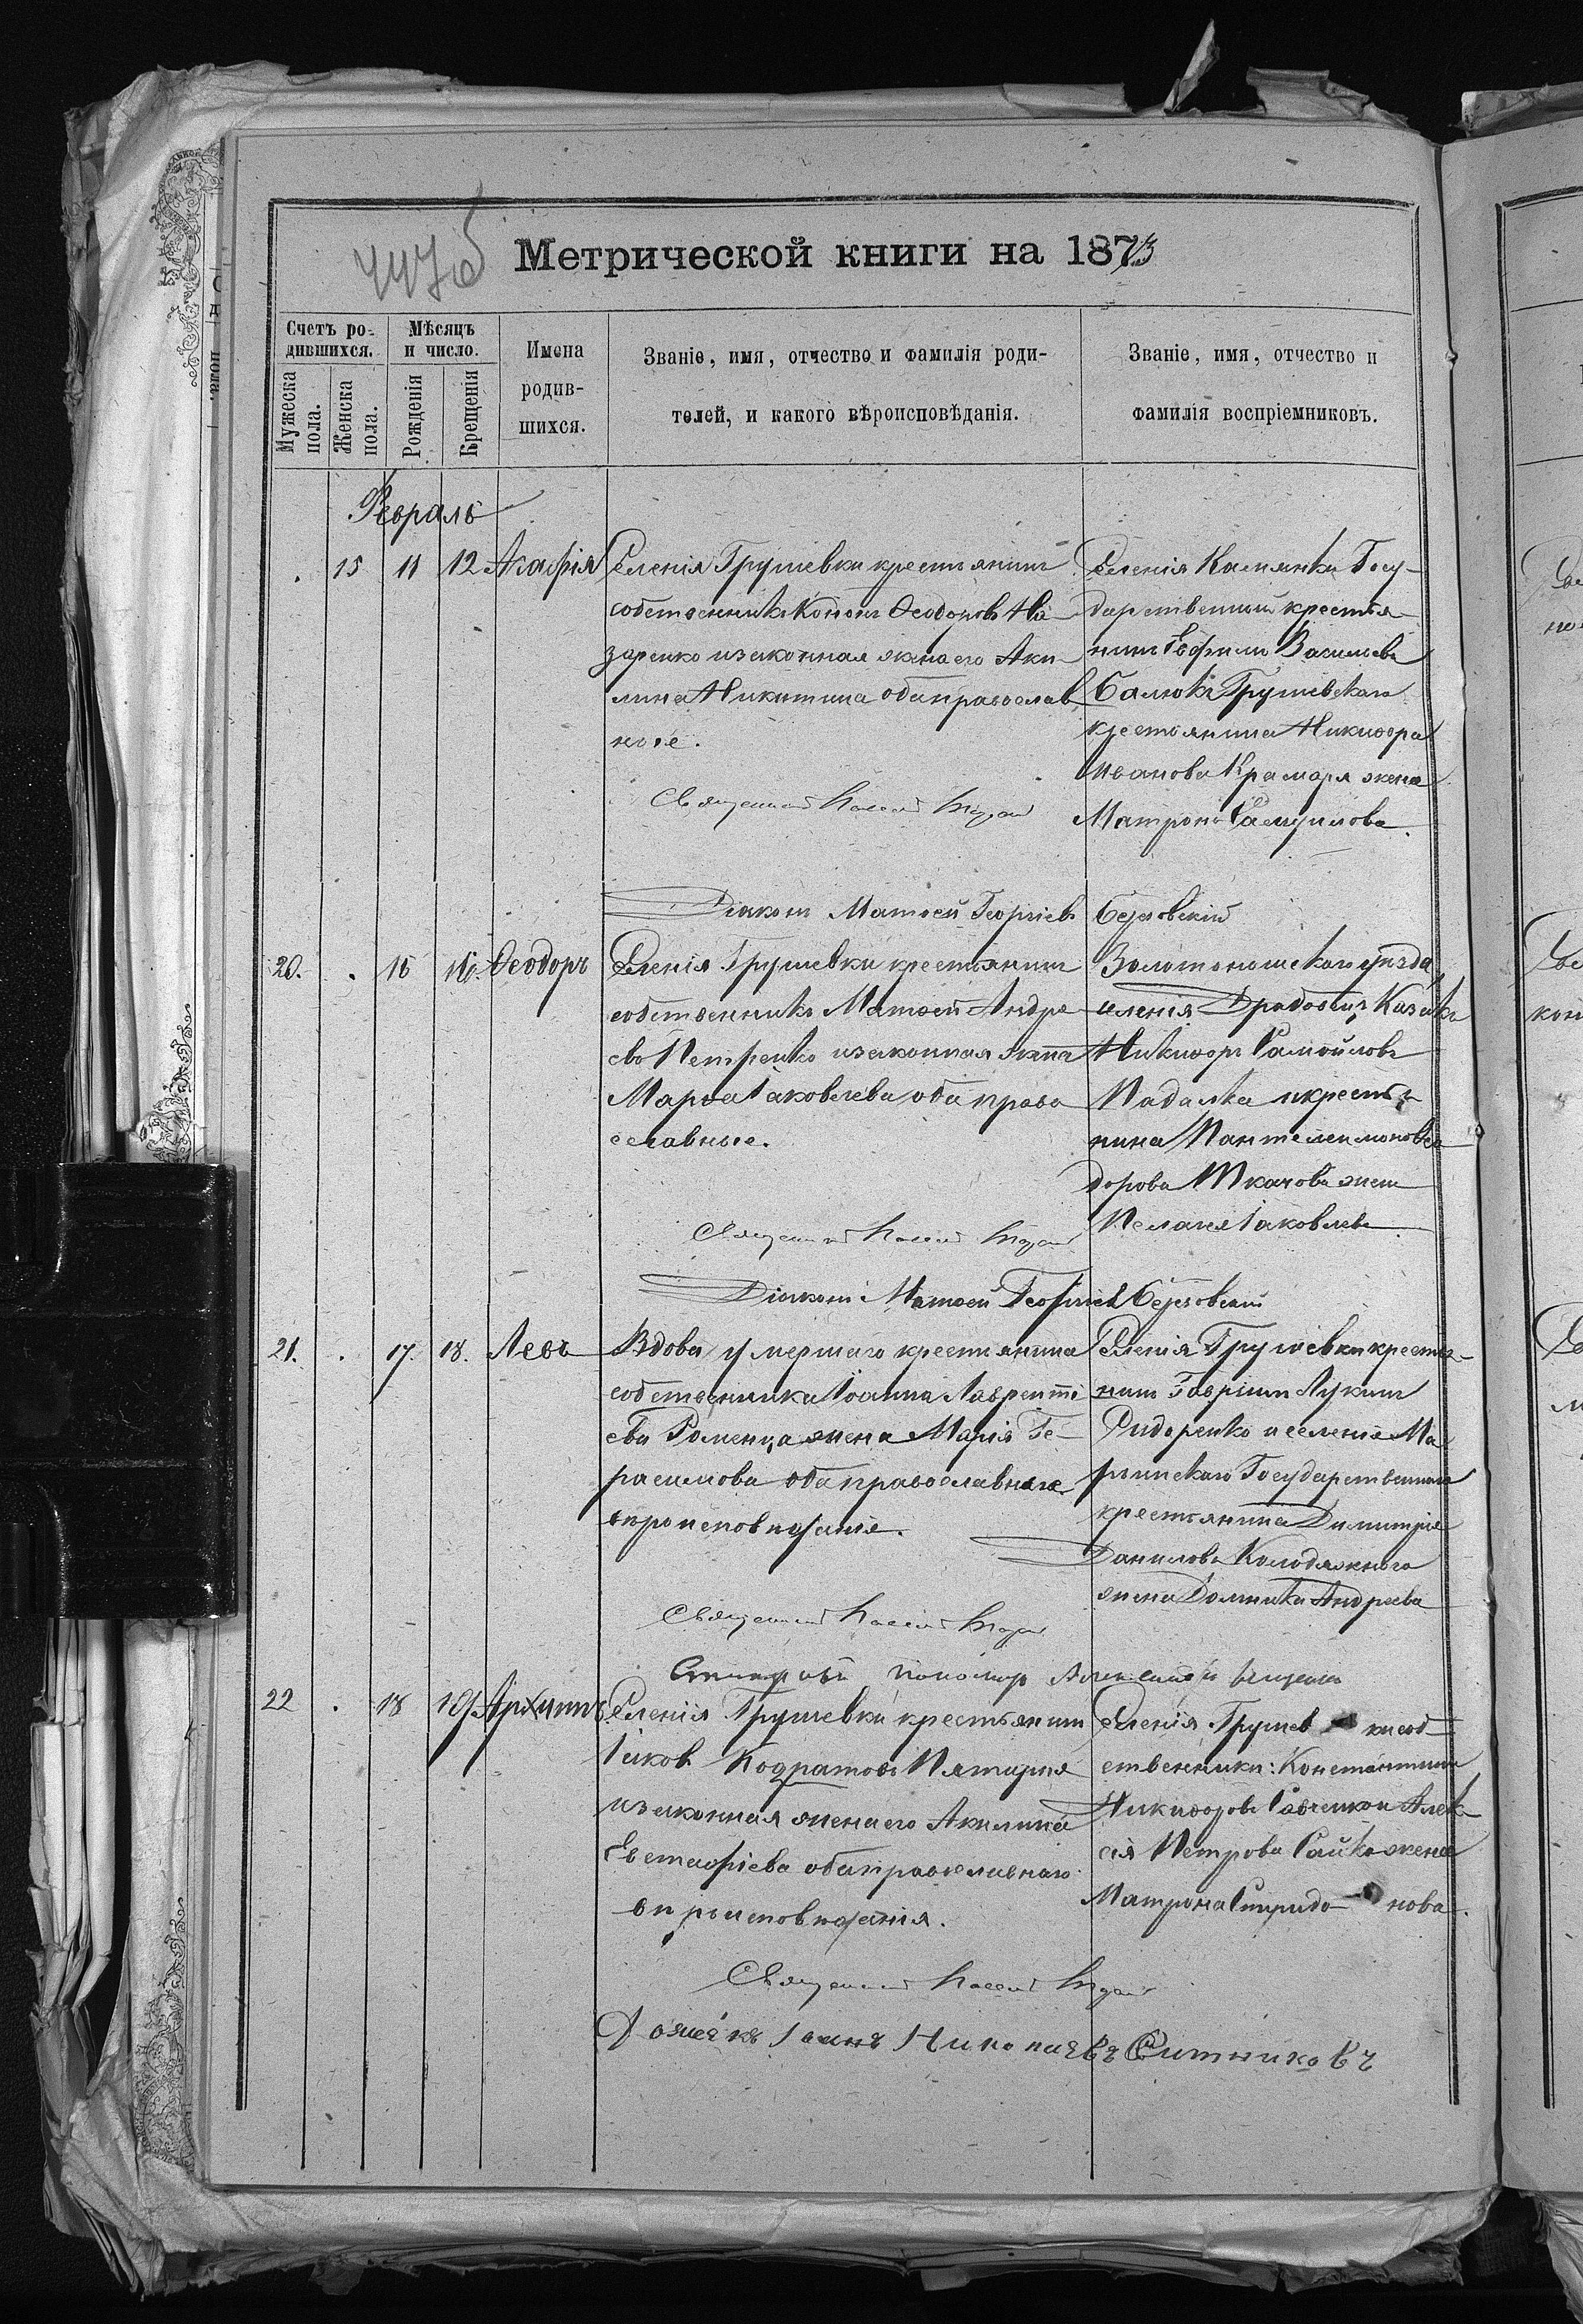 447об
Метрической книги на 1873
Счетъ родившихся.
Мѣсяцъ и число.
Мужеска пола.
Женска пола.
Рожденія
Крещенія
Имена родившихся.
Званіе, имя, отчество и фамилія родителей, и какого вѣроисповѣданія.
Званіе, имя, отчество и фамилія воспріемниковъ.
Февраль
15 11 12 Агафія
Селенія Грушевки крестьянинъ
собственникъ Кононъ Ѳеодоровъ На-
заренко и законная жена его Аки-
лина Никитина оба православ
ные.
Селенія Госу-
дарственный крестья-
нинъ Васильевъ
Балюкъ Грушевскаго
крестьянина Никифора
Иванова Крамаря жена
Матрона Самуилова.
Священникъ
Діаконъ Матѳей Георгіевъ Березовскій
20. 16 16. Ѳеодоръ
Селенія Грушевки крестьянинъ
собственникъ Матѳей Андре
евъ Петренко и законная жена
Марѳа Іаковлева оба право
славные.
Золотоношскаго уѣзда,
селенія Драбовца Казакъ
Никифоръ Самойловъ
Падалка и крестья
нина Пантелеимона Ѳео
дорова Ткачова жена
Пелагія Іаковлева
Священникъ
Діаконъ Матѳей Георгіевъ Березовскій
21. 17. 18. Левъ
Вдова умершаго крестьянина
собственника Іоанна Лаврентi
ева Роменца жена Марія Ге-
расимова оба православнаго
вѣроисповѣданія.
Селенія Грушевки крестья-
нинъ Гавріилъ Лукинъ
Сидоренко и селенія Ма
рьинскаго Государственнаго
крестьянина Димитрія
Данилова Колодяжнаго
жена Домника Андреева
Священникъ
пономарь
22 18 19 Архиппъ
Селенія Грушевки крестьянинъ
Іаковъ Кодратовъ
и законная жена его Акилина
Евстафіева оба православнаго
вѣроисповѣданія.
Селенія Грушевки соб
ственники: Константинъ
Никифоровъ Савченко и Алек-
сія Петрова Сайка жена
Матрона Спиридонова.
Священникъ
Іоанъ Николаевъ Ситниковъ